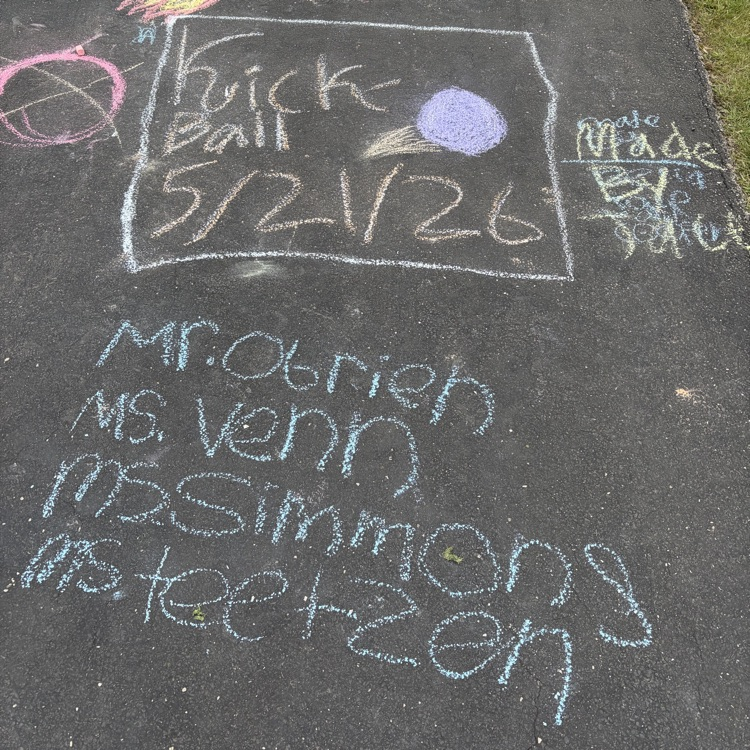 Kick
Ball
5/21/26
Made
By
Mr. Obrien
Ms. Venn
Ms Simmons
Ms teetzen